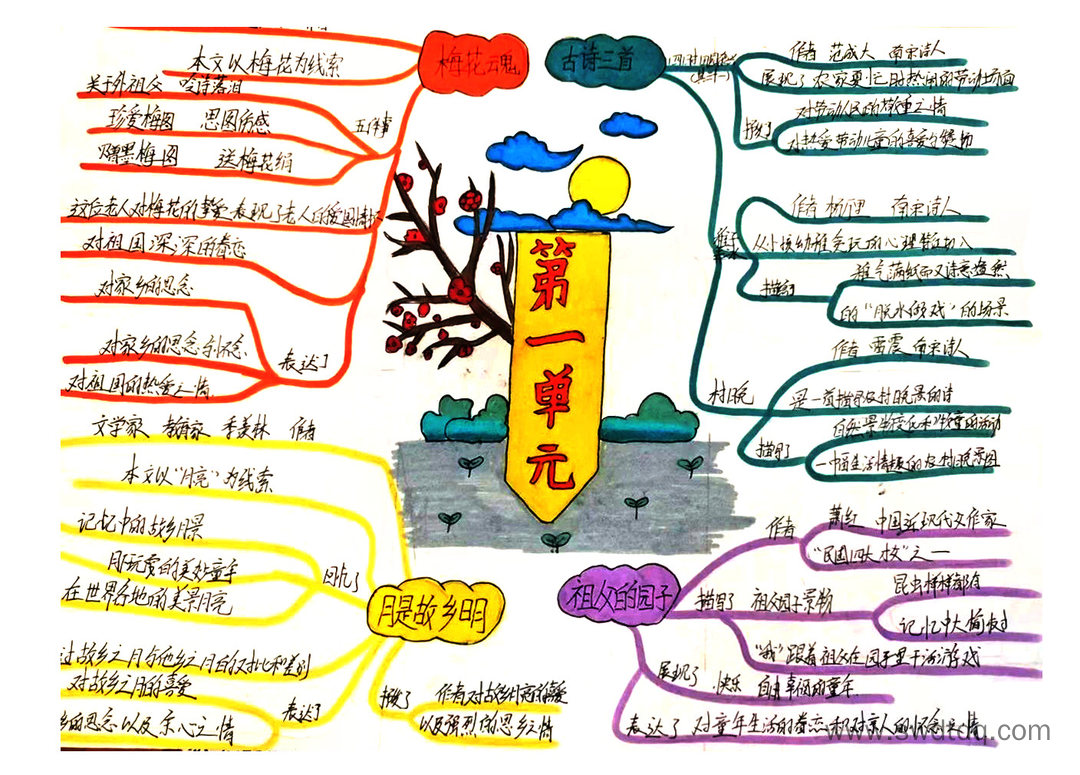 第一单元
古诗三首
四时田园杂兴
(其三十一)
作者 范成大 南宋诗人
展现了农家夏忙时热闹的劳动场面
抒发了
对劳动人民的敬重之情
对热爱劳动儿童的喜爱与赞扬
稚子弄冰
作者 杨万里 南宋诗人
从小孩幼稚贪玩的心理特征切入
描绘了
稚气满纸而又诗意盎然
的“脱水游戏”的场景
村晚
作者 雷震 南宋诗人
是一首描写农村晚景的诗
描写了
自然景
一幅生活情趣的农村晚景图
祖父的园子
作者
萧红 中国近现代女作家
“民国四大才女”之一
描写了 祖父园子景物
昆虫样样都有
记忆中大榆树
“我”跟着祖父在园子里干活游戏
展现了 快乐 自由幸福的童年
表达了 对童年生活的眷恋和对亲人的怀念之情
梅花魂
本文以梅花为线索
五件事
关于外祖父 吟诗落泪
珍爱梅图 思国伤感
赠墨梅图 送梅花绢
这位老人对梅花的挚爱表现了老人的爱国情怀
对祖国深深的眷恋
对家乡的思念
表达了
对家乡的思念
对祖国的热爱之情
月是故乡明
文学家 教育家 季羡林 作者
本文以“月亮”为线索
回忆了
记忆中的故乡月景
月玩赏的美妙童年
在世界各地的美景月亮
过故乡之月与他乡之月的对比和差别
对故乡之月的喜爱
表达了
乡的思念以及赤心之情
抒发了
作者对故乡月亮的喜爱
以及强烈的思乡之情
www.swdtdq.com